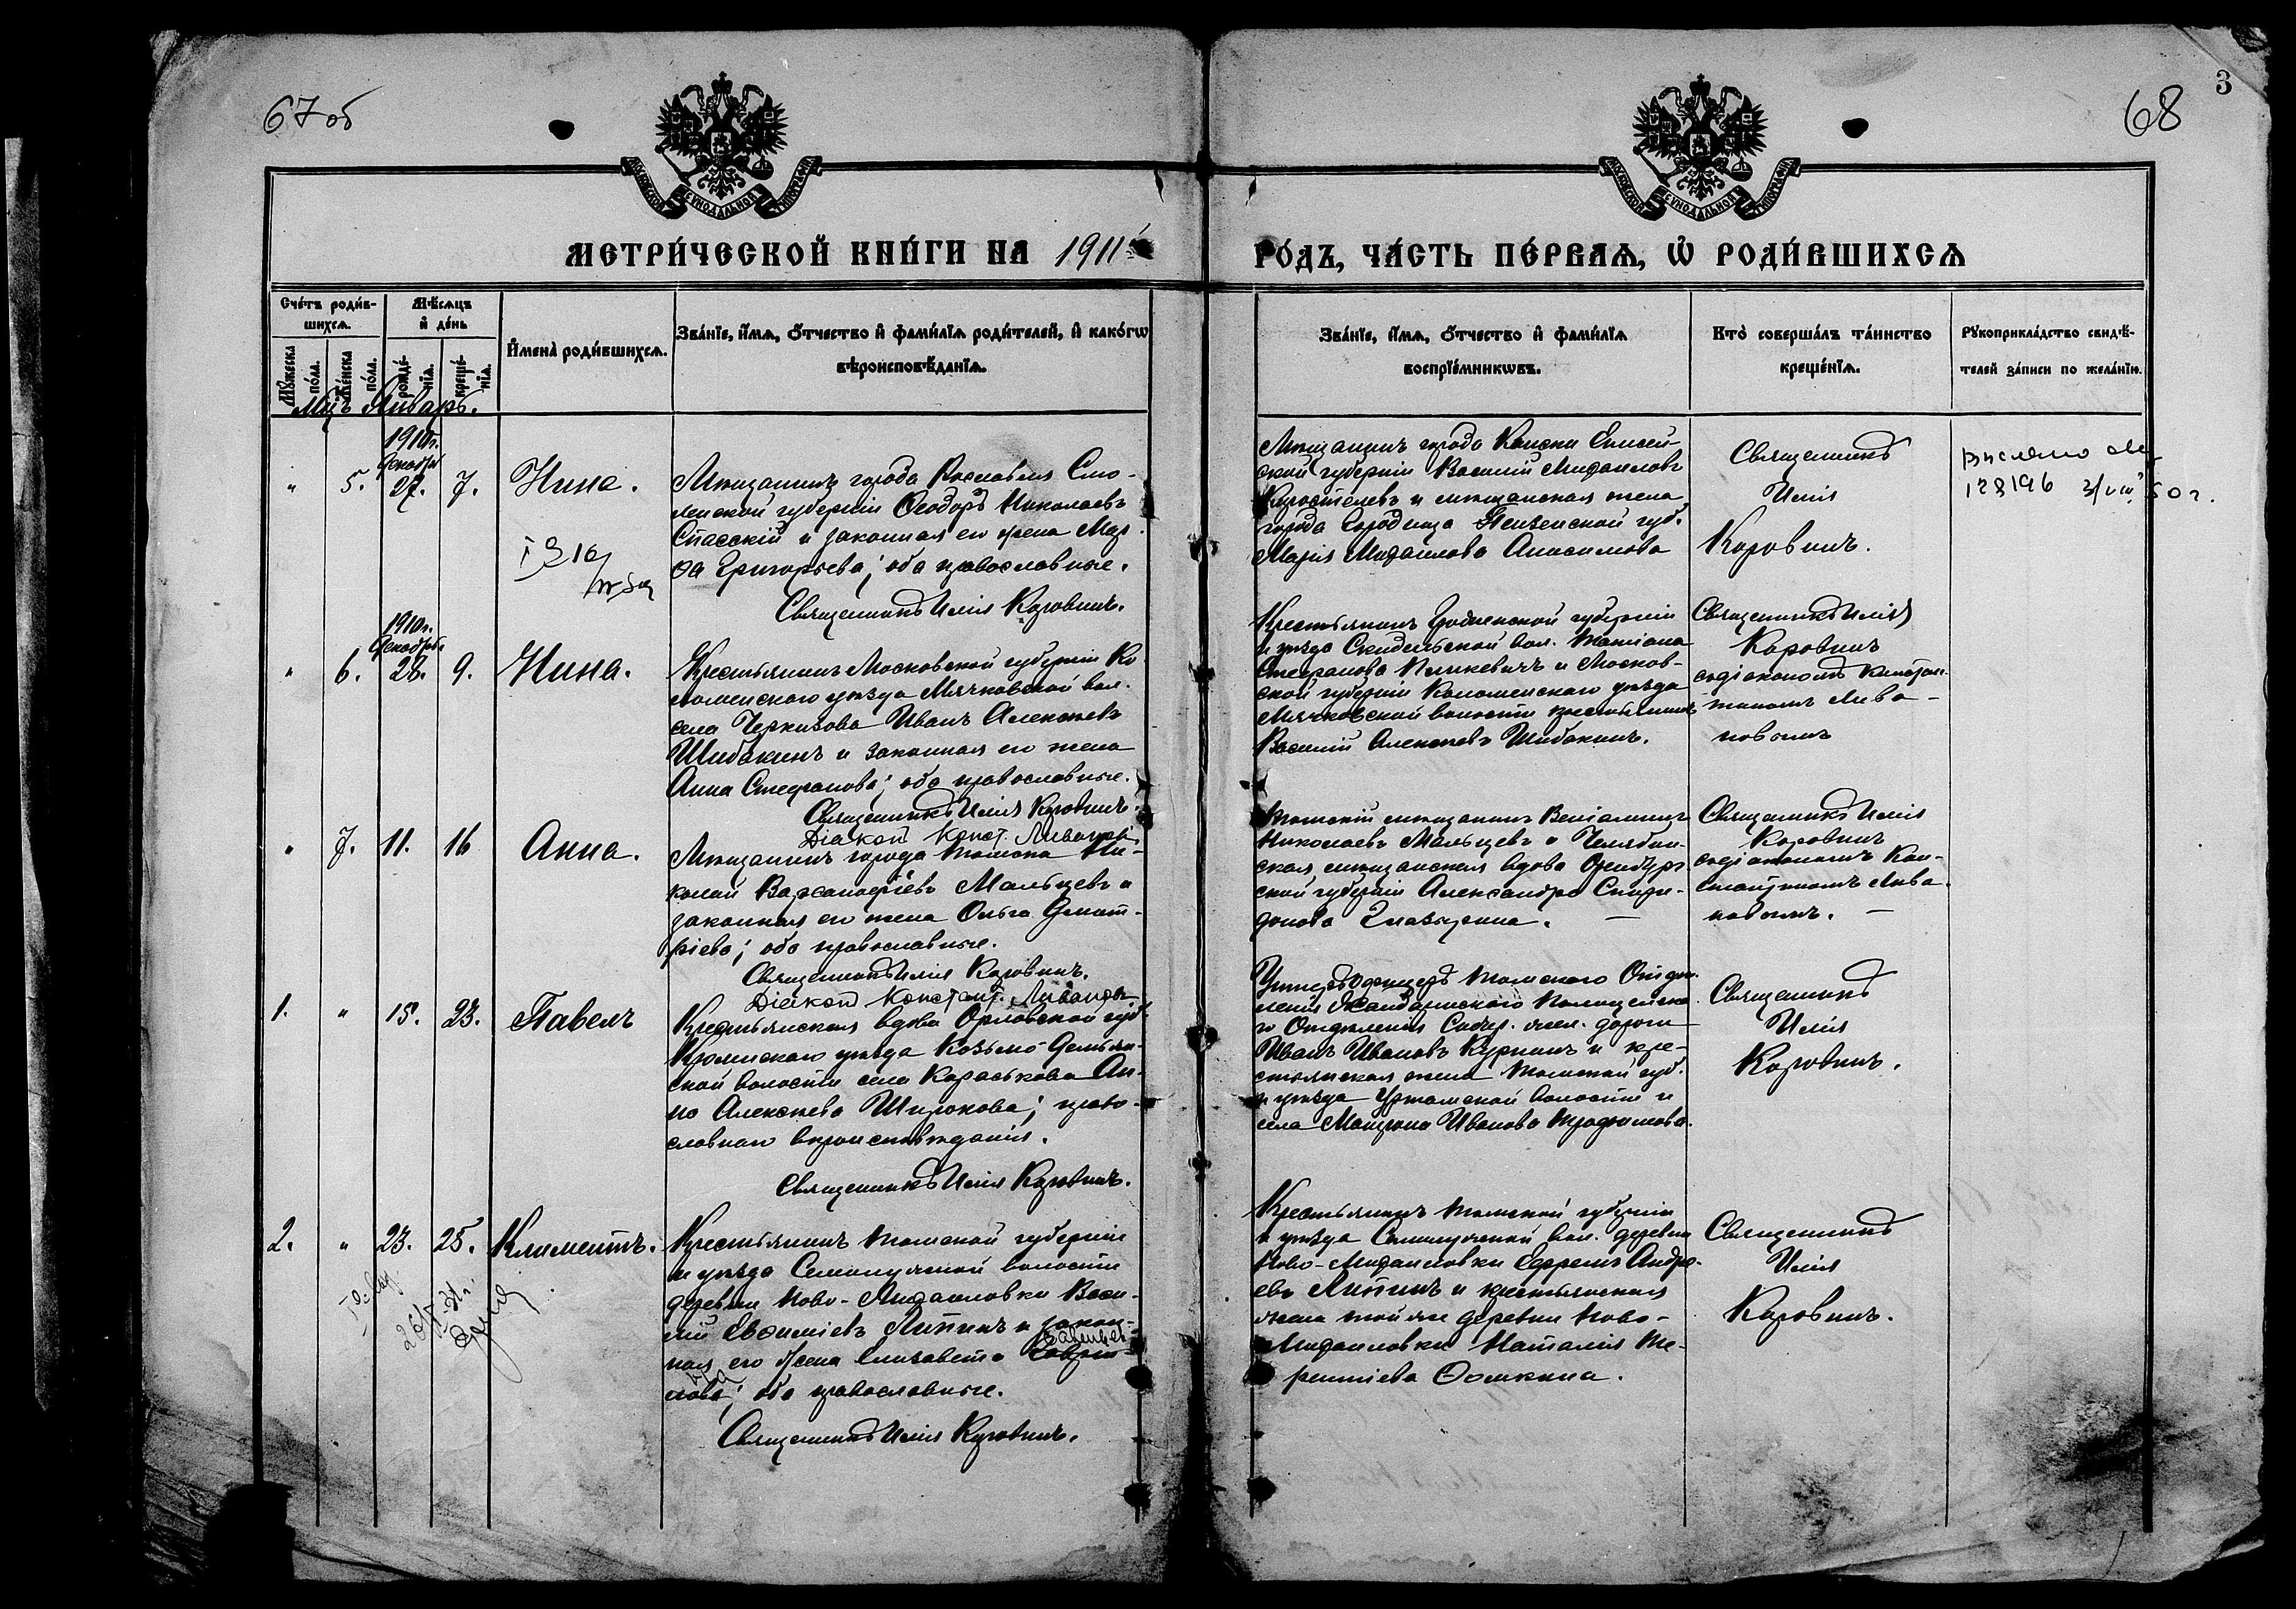 67 об
68
3
МОСКОВСКОЙ СѴНОДАЛЬНОЙ ТИПОГРАФІИ
МОСКОВСКОЙ СѴНОДАЛЬНОЙ ТИПОГРАФІИ
МЕТРИ́ЧЕСКОЙ КНИ́ГИ НА 1911
ГО́ДЪ, ЧА́СТЬ ПЕ́РВАЯ, Ѡ РОДИ́ВШИХСЯ
Сче́тъ роди́в-
шихся.
Мѣ́сяцъ
и де́нь
Имена̀ роди́вшихся.
Зва́ніе, и́мя, о́тчество и фами́лія роди́телей, и како́гѡ
вѣроисповѣ́данія.
Му́жеска
по́ла.
Же́нска
по́ла.
рожде́-
нія.
креще́-
нія.
Зва́ніе, и́мя, о́тчество и фами́лія
воспріе́мникѡвъ.
Кто̀ соверша́лъ та́инство
креще́нія.
Рукоприкла́дство свидѣ́-
телей за́писи по жела́нію.
Мцъ Январь.
1910г.
Декабря
" 5. 27. 7. Нина.
Мѣщанинъ города Рославля Смо-
ленской губерніи Ѳеодоръ Николаевъ
Спасскій и законная его жена Мар-
ѳа Григорьева; оба православные.
Священникъ Илія Коровинъ.
Мѣщанинъ города Канска Енисей-
ской губерніи Василій Михаиловъ
Коростелевъ и мѣщанская жена
города Городища Пензенской губ.
Марія Михаилова Анисимова
Священникъ
Илія
Коровинъ.
128196 3/VIII 50 г.
1910г.
Декабря
" 6. 28. 9. Нина.
Крестьянинъ Московской губерніи Ко-
ломенскаго уѣзда Мячковской вол.
села Черкизова Иванъ Алексѣевъ
Шибакинъ и законная его жена
Анна Стефанова; оба православные.
Священникъ Илія Коровинъ.
Діаконъ Конст. Ливановъ
Крестьянинъ Гродненской губерніи
и уѣзда Скидельской вол. Татіана
Стефанова Пилкевичъ и Москов-
ской губерніи Коломенскаго уѣзда
Мячковской волости крестьянинъ
Василій Алексѣевъ Шибакинъ.
Священникъ Илія
Коровинъ
съ діакономъ Констан-
тиномъ Лива-
новымъ
" 7. 11. 16 Анна.
Мѣщанинъ города Томска Ни-
колай Варѳаломѣевъ Мальцевъ и
законная его жена Ольга Димит-
ріева; оба православные.
Священникъ Илія Коровинъ.
Діаконъ Констант. Ливановъ
Томскій мѣщанинъ Веніаминъ
Николаевъ Мальцевъ и Челябин-
ская мѣщанская вдова Оренбург-
ской губерніи Александра Спири-
донова Глазырина. —
Священникъ Илія
Коровинъ
съ діакономъ Кон-
стантиномъ Лива-
новымъ. —
1. " 15. 23. Павелъ
Крестьянская вдова Орловской губ.
Кромскаго уѣзда Козьмо-Демьян-
ской волости села Караськова Ан-
на Алексѣева Широкова; право-
славнаго вѣроисповѣданія.
Священникъ Илія Коровинъ.
Унтеръ-Офицеръ Томскаго Отдѣ-
ленія Жандармскаго Полицейска-
го Отдѣленія Сибир. жел. дороги
Иванъ Ивановъ Куркинъ и кре-
стьянская жена Томской губ.
и уѣзда Уртамской волости и
села Матрона Иванова Трофимова.
Священникъ
Илія
Коровинъ.
2. " 23. 25. Климентъ.
Крестьянинъ Томской губерніи
и уѣзда Семилужной волости
деревни Ново-Михаиловки Васи-
лій Евѳиміевъ Липинъ и закон-
ная его жена Елизавета
оба православные.
Священникъ Илія Коровинъ.
Крестьянинъ Томской губерніи
и уѣзда Семилужной вол. деревни
Ново-Михаиловки Ефремъ Андре-
евъ Липинъ и крестьянская
жена той же деревни Ново-
Михаиловки Наталія Те-
рентіева Ѳомкина.
Священникъ
Илія
Коровинъ.